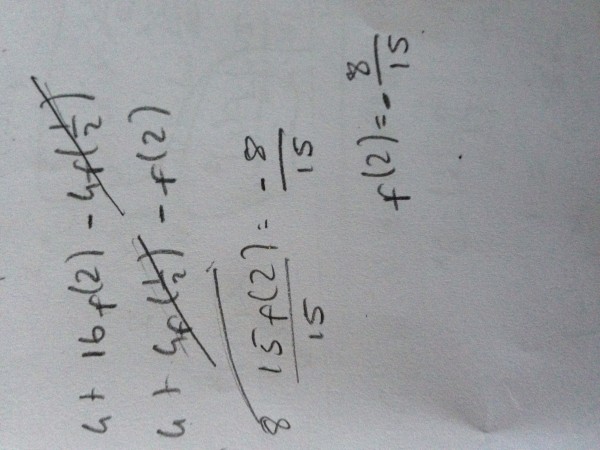 4 + 16 f(2) - 4f(1/2)
4 + 4f(1/2) - f(2)
8 15 f(2) = - 8
15 15
f(2) = - 8/15